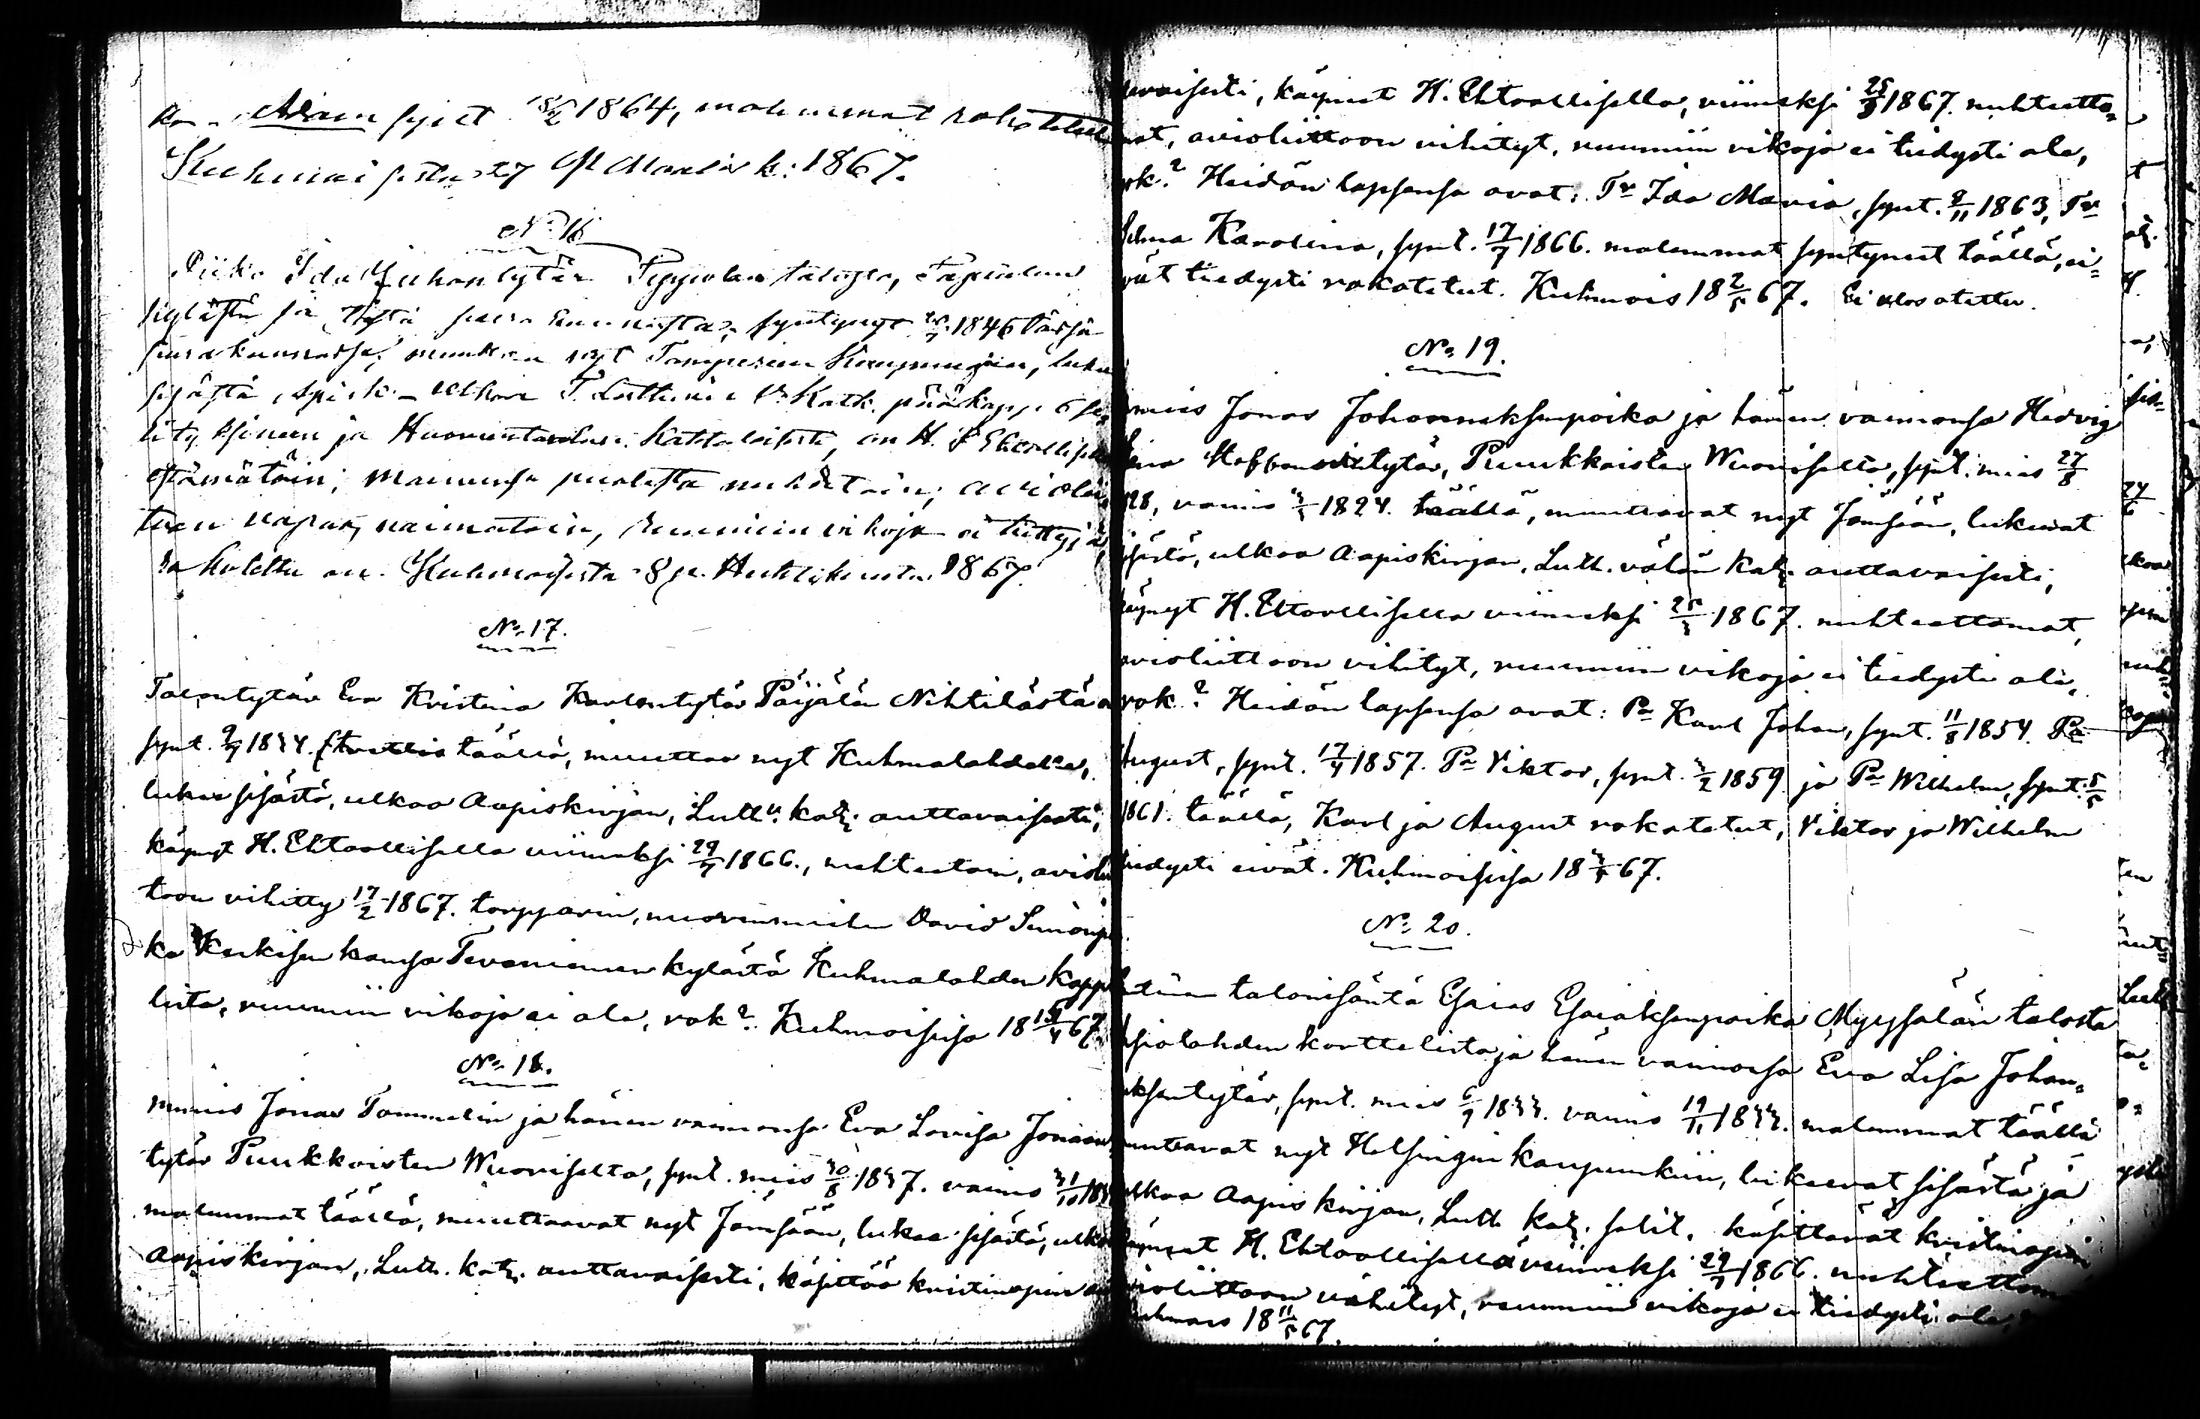 Adam synt 18/2 1864, molemmat rokotetut
Kuhmoisista 27 p. Maalisk: 1867.
No 16
Piika Ida Juhontytär Seppolan talosta, Tapialan
kylästä ja tästä seurakunnasta, syntynyt 1846 tässä
seurakunnassa, muuttaa nyt Tampereen Kaupunkiin, lukee
sisästä, ulkoa Lutherin V. Katk. pääkapp.
ja Huoneentaulun, on H. P. Ehtoollisella
estämätöin; maineensa puolesta nuhtetoin, aviolii
toon vapaa, naimatoin, ruumiin vikoja ei tietty, ja
Rokotettu on. Kuhmoisista 8 p. Huhtikuuta 1867.
No. 17.
Talontytär Eva Kristina Karlontytär Päijälän Nihtilästä
synt. 9/7 1834 täällä, muuttaa nyt Kuhmalahdelle,
lukee sisästä, ulkoa Aapiskirjan, Luth. katk. auttavaisesti,
käynyt H. Ehtoollisella viimeksi 29/7 1866., nuhteetoin, aviolii
toon vihitty 17/2 1867. torpparin, nuorenmiehen David Simonpo
ka Keskisen kanssa Tevaniemen kylästä Kuhmalahden kappe
lista, ruumiin vikoja ei ole, rok? Kuhmoisissa 18 /4 67.
No. 18.
mies Jonas Tommelin ja hänen vaimonsa Eva Lovisa Jonaan
tytär Puukkoisten Wuoriselta, synt. mies 30/8 1837. vaimo 31/10 18
molemmat täällä, muuttaavat nyt Jämsään, lukee sisästä, ulkoa
Aapiskirjan, Luth. katk. auttavaisesti, käsittää kristinopin
tavaisesti, käyneet H. Ehtoollisella, viimeksi 25/3 1867. nuhteetto=
mat, avioliittoon vihityt, ruumiin vikoja ei tiedysti ole,
rok? Heidän lapsensa ovat: Tr Ida Maria, synt. 9/11 1863, Tr
Selma Karolina, synt. 17/7 1866. molemmat syntyneet täällä, ei=
vät tiedysti rokotetut. Kuhmois 18 2/5 67. Ei ulos otettu.
No. 19.
mies Jonas Johanneksenpoika ja hänen vaimonsa Hedvig
Staffanintytär, Puukkoisten Wuoriselta, synt. mies 27/8
28, vaimo 3/5 1824. täällä, muuttavat nyt Jämsään, lukevat
sisästä, ulkoa Aapiskirjan, Luth. vähän katk. auttavaisesti,
käynyt H. Ehtoollisella viimeksi 25/3 1867. nuhteettomat,
avioliittoon vihityt, ruumiin vikoja ei tiedysti ole,
rok? Heidän lapsensa ovat: Pa Karl Johan, synt. 11/8 1854. Pa
August, synt. 17/4 1857. Pa Viktor, synt. 3/2 1859 ja Pa Wilhelm, synt. 5/5
1861. täällä, Karl ja August rokotetut, Viktor ja Wilhelm
tiedysti eivät. Kuhmoisissa 18 3/5 67.
No. 20.
talonisäntä Esaias Esaiaksenpoika Myyssälän talosta
lahden korttelista ja hänen vaimonsa Eva Lisa Johan=
neksentytär, synt. mies 6/9 1833. vaimo 19/11 1833. molemmat täällä
muuttavat nyt Helsingin kaupunkiin, lukeevat sisästä ja
ulkoa Aapiskirjan, Luth. katk. selit. käsittävät kristinopin
käyneet H. Ehtoollisella viimeksi 29/7 1866. nuhteettom
avioliittoon vihityt, ruumiin vikoja ei tiedysti ole,
Kuhmois 18 11/5 67.